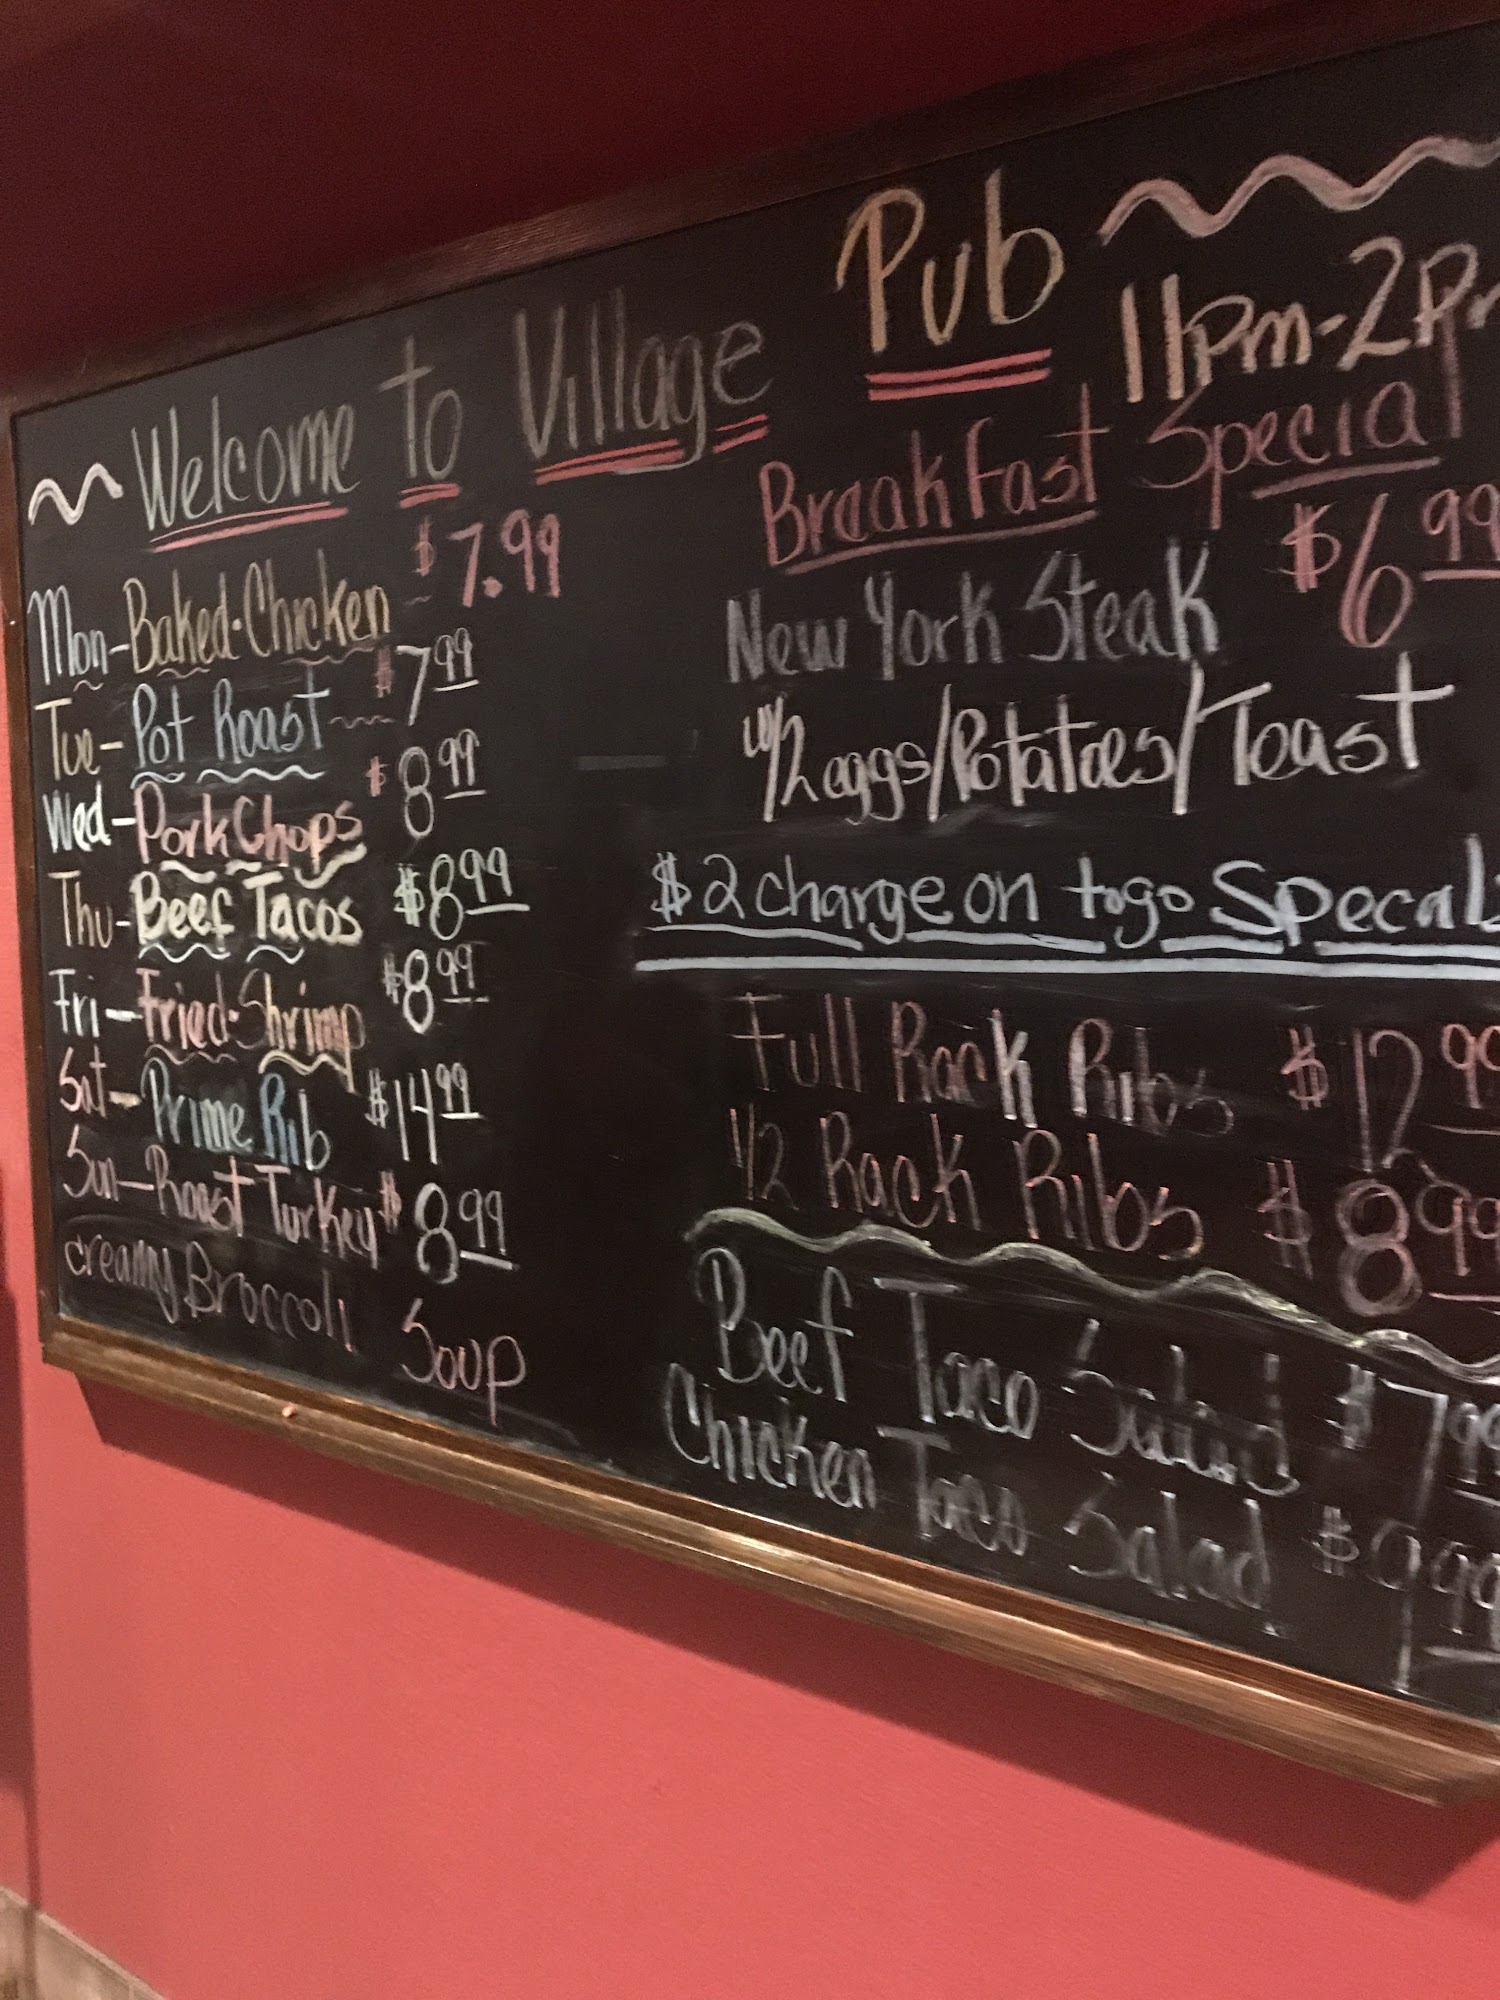 Welcome to Village Pub
Mon-Baked-Chicken - $7.99
Tue-Pot Roast $7.99
Wed-Pork Chops $8.99
Thu-Beef Tacos $8.99
Fri-Fried-Shrimp $8.99
Sat-Prime Rib $14.99
Sun-Roast Turkey $8.99
creamy Broccoli Soup
11pm-2P
Breakfast Special
New York Steak $6.99
w/2 eggs/Potatoes/Toast
$2 charge on togo Specals
Full Rack Ribs $12.99
1/2 Rack Ribs $8.99
Beef Taco Salad $7.99
Chicken Taco Salad $9.99